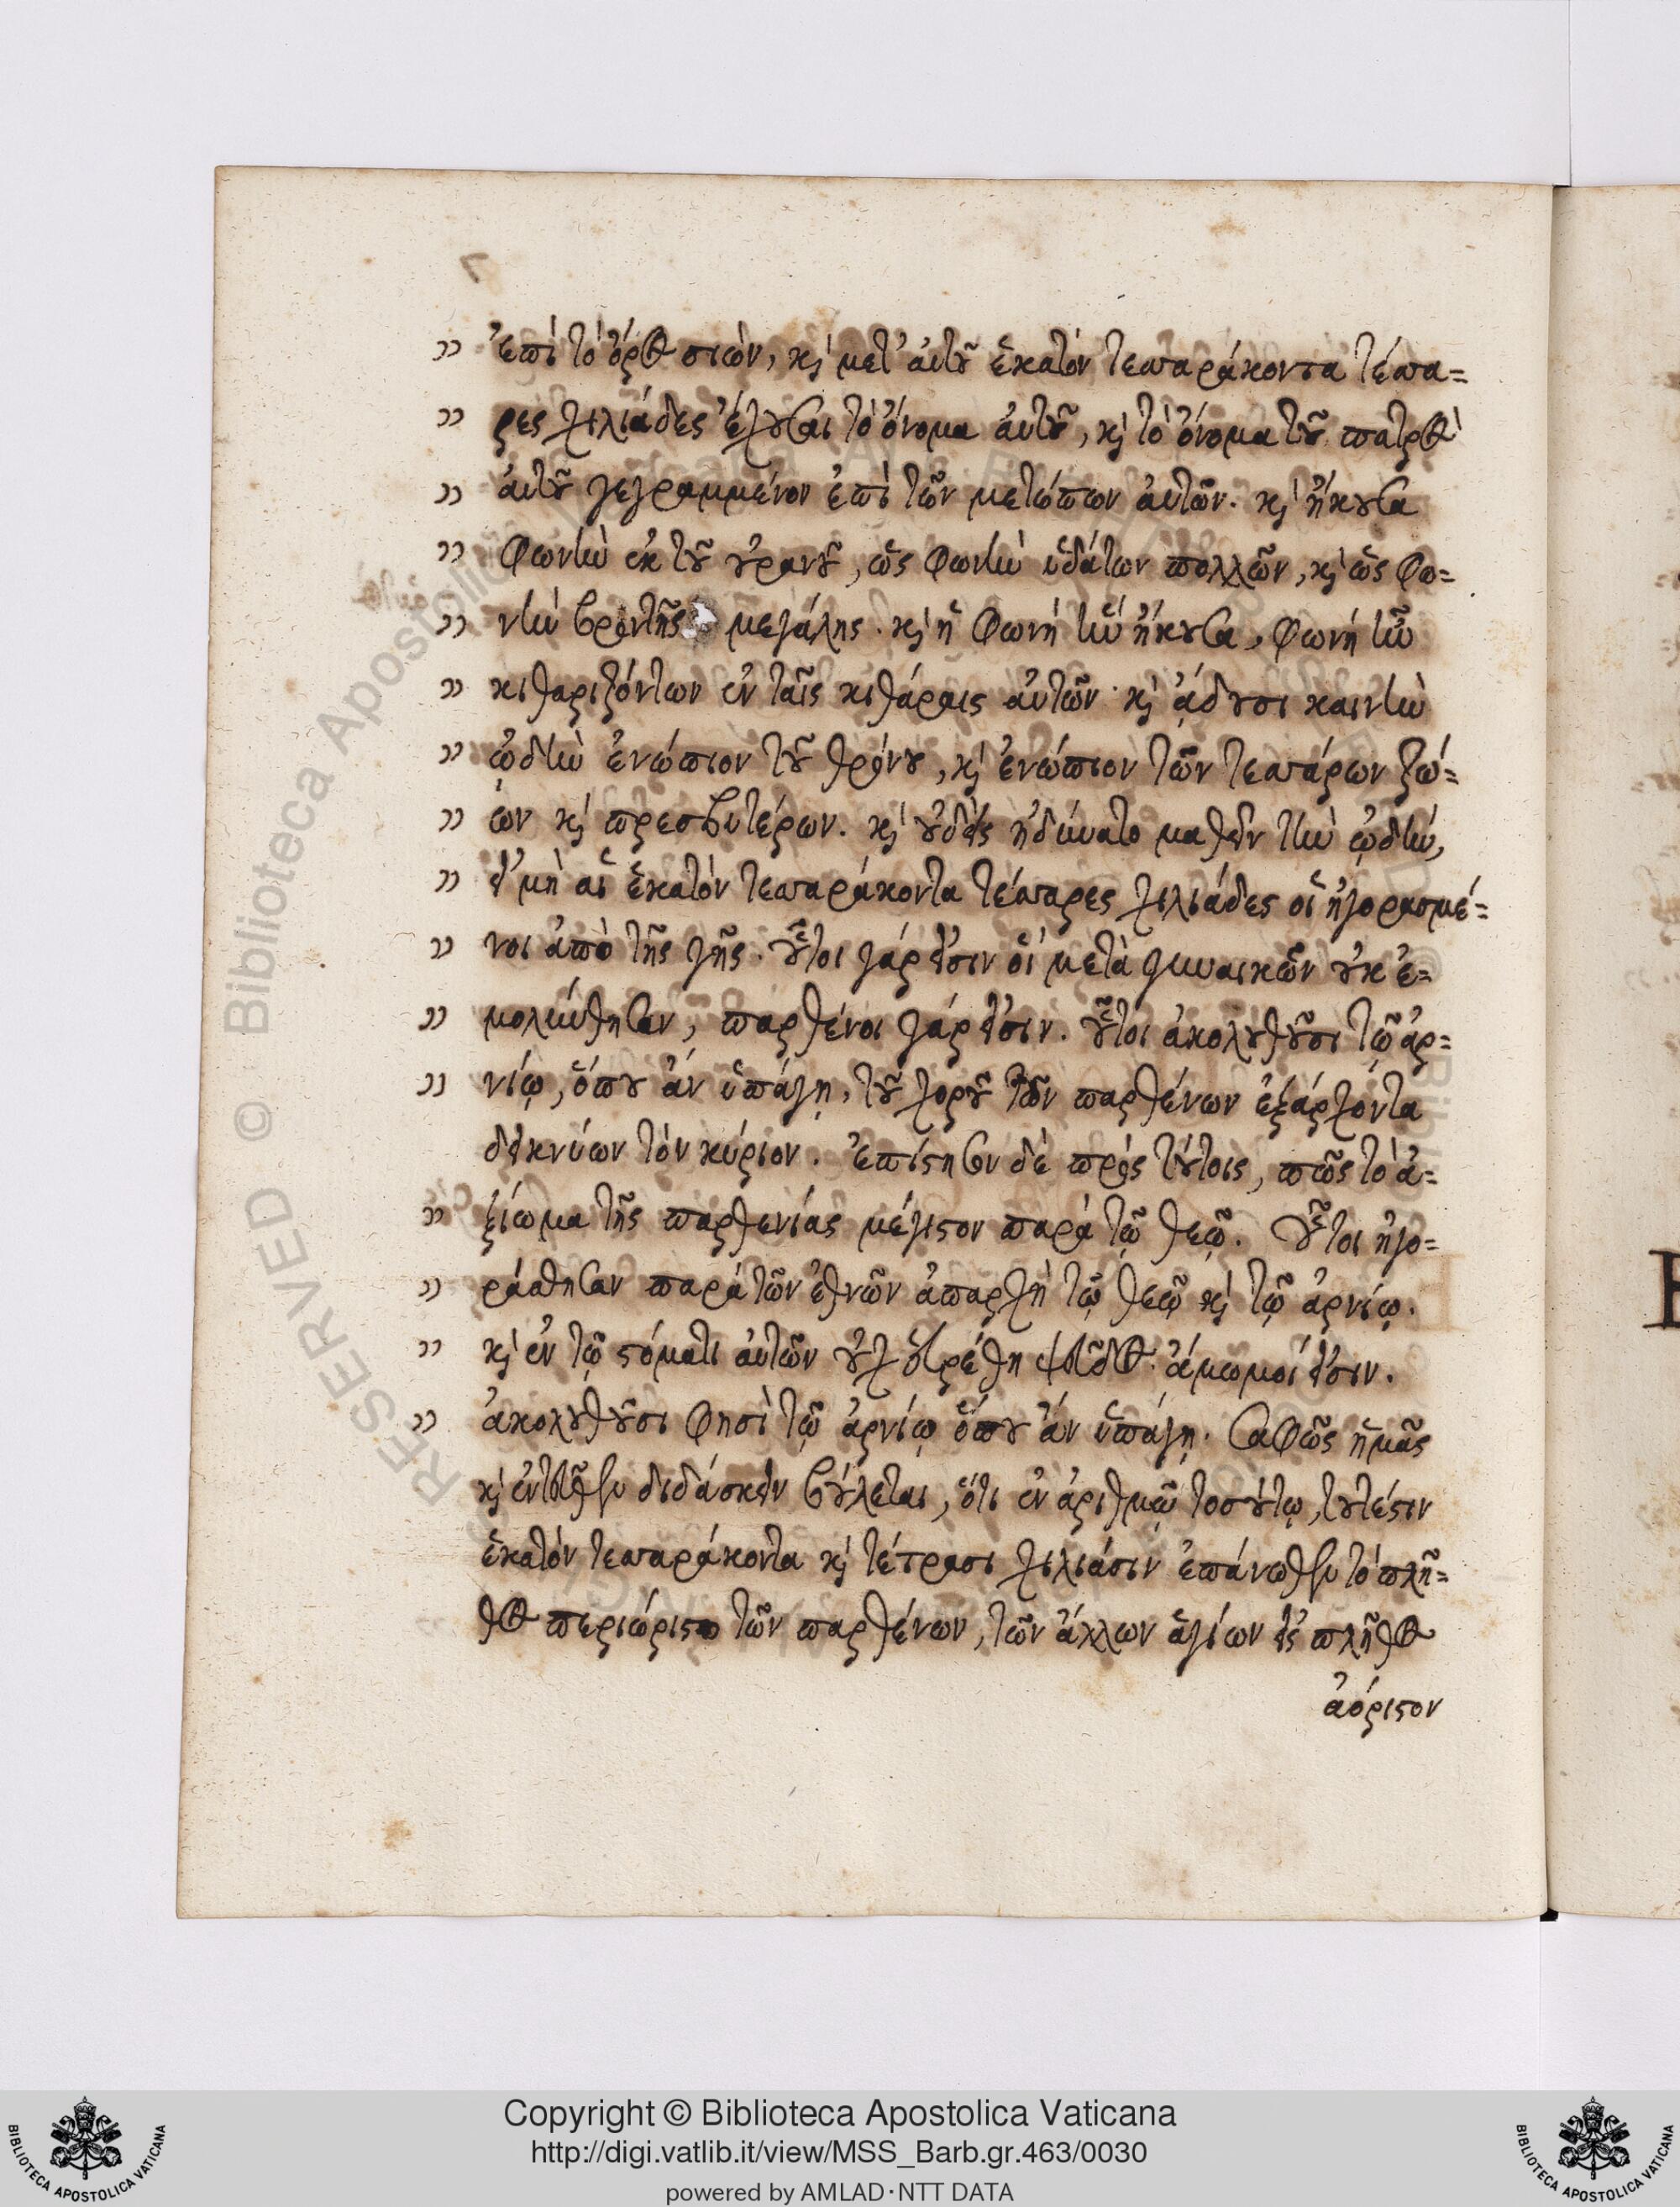 ἐπὶ τὸ ὄρος σιὼν, κὶ μετ' αὐτοῦ ἑκατὸν τεσσαράκοντα τέσσα=
ρες χιλιάδες ἔχουσαι τὸ ὄνομα αὐτοῦ, κὶ τὸ ὄνομα τοῦ πατρὸς
αὐτοῦ γεγραμμένον ἐπὶ τῶν μετώπων αὐτῶν. κὶ ἤκουσα
φωνὴν ἐκ τοῦ οὐρανοῦ, ὡς φωνὴν ὑδάτων πολλῶν, κὶ ὡς φω=
νὴν βροντῆς μεγάλης. κὶ ἡ φωνὴ ἣν ἤκουσα, φωνὴ ἦν
κιθαριζόντων ἐν ταῖς κιθάραις αὐτῶν· κὶ ᾄδουσι καινὴν
ᾠδὴν ἐνώπιον τοῦ θρόνου, κὶ ἐνώπιον τῶν τεσσάρων ζώ=
ων κὶ πρεσβυτέρων. κὶ οὐδεὶς ἠδύνατο μαθεῖν τὴν ᾠδὴν,
εἰ μὴ αἱ ἑκατὸν τεσσαράκοντα τέσσαρες χιλιάδες οἱ ἠγορασμέ=
νοι ἀπὸ τῆς γῆς. οὗτοι γάρ εἰσιν οἳ μετὰ γυναικῶν οὐκ ἐ=
μολύνθησαν, παρθένοι γάρ εἰσιν. οὗτοι ἀκολουθοῦσι τῷ ἀρ=
νίῳ, ὅπου ἂν ὑπάγῃ, τοῦ χοροῦ τῶν παρθένων ἐξάρχοντα
δεικνύων τὸν κύριον. ἐπίστησον δὲ πρὸς τούτοις, πῶς τὸ ἀ=
ξίωμα τῆς παρθενίας μέγιστον παρὰ τῷ θεῷ. οὗτοι ἠγο=
ράσθησαν παρὰ τῶν ἐθνῶν ἀπαρχὴ τῷ θεῷ κὶ τῷ ἀρνίῳ.
κὶ ἐν τῷ στόματι αὐτῶν οὐχ εὑρέθη ψεῦδος· ἄμωμοί εἰσιν.
ἀκολουθοῦσι φησὶ τῷ ἀρνίῳ ὅπου ἂν ὑπάγῃ. σαφῶς ἡμᾶς
κὶ ἐντεῦθεν διδάσκειν βούλεται, ὅτι ἐν ἀριθμῷ τοσούτῳ, τουτέστιν
ἑκατὸν τεσσαράκοντα κὶ τέτρασι χιλιάσιν ἐπάνωθεν τὸ πλῆ=
θος περιώριστο τῶν παρθένων, τῶν ἄλλων ἁγίων εἰς πλῆθος
ἀόριστον
Copyright © Biblioteca Apostolica Vaticana
http://digi.vatlib.it/view/MSS_Barb.gr.463/0030
powered by AMLAD·NTT DATA
BIBLIOTECA APOSTOLICA VATICANA
BIBLIOTECA APOSTOLICA VATICANA